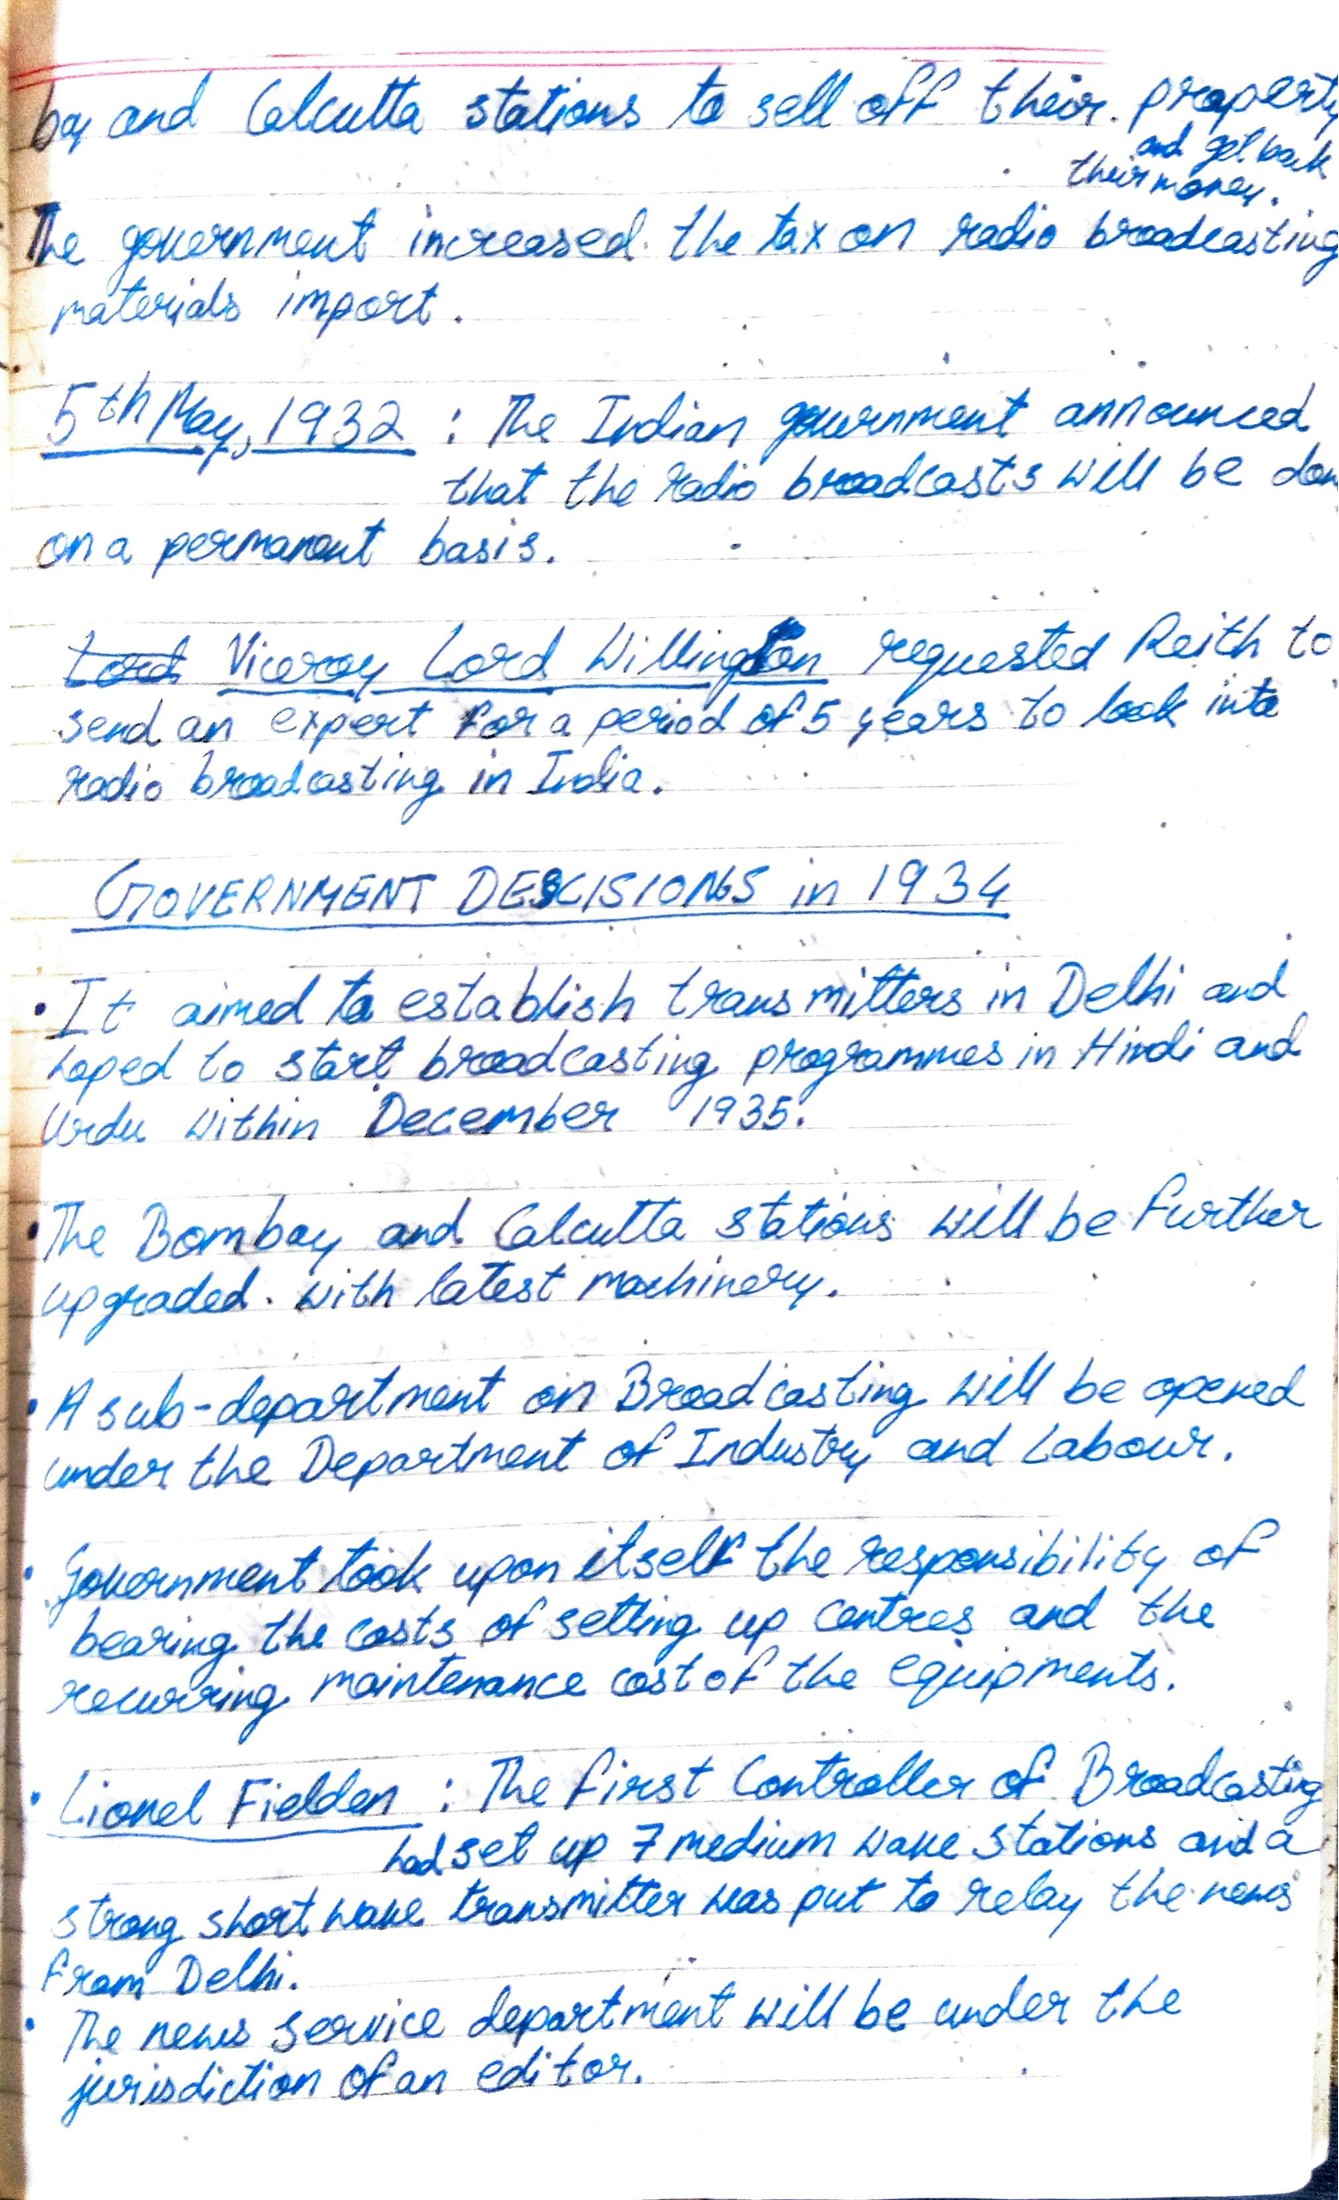 bay and Calcutta stations to sell off their property
and get back
their money.
The government increased the tax on radio broadcasting
materials import.
5th May, 1932 : The Indian government announced
that the radio broadcasts will be don
on a permanent basis.
Lord Viceroy Lord Willington requested Reith to
send an expert for a period of 5 years to look into
radio broadcasting in India.
GOVERNMENT DESCISIONS in 1934
• It aimed to establish transmitters in Delhi and
hoped to start broadcasting programmes in Hindi and
Urdu within December 1935.
• The Bombay and Calcutta stations will be further
upgraded with latest machinery.
• A sub-department on Broadcasting will be opened
under the Department of Industry and Labour.
• Government took upon itself the responsibility of
bearing the costs of setting up centres and the
recurring maintenance cost of the equipments.
• Lionel Fielden : The first Controller of Broadcasting
had set up 7 medium wave stations and a
strong short wave transmitter was put to relay the news
from Delhi.
• The news service department will be under the
jurisdiction of an editor.